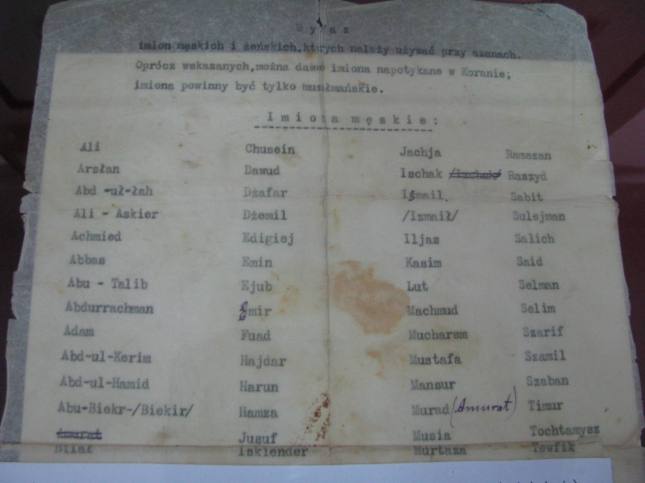 Wykaz
imion męskich i żeńskich, których należy używać przy azanach.
Oprócz wskazanych, można dawać imiona napotykane w Koranie;
imiona powinny być tylko muzułmańskie.
Imiona męskie:
Ali Chusein Jachja Ramazan
Arsłan Dawud Ischak Raszyd
Abd -uł-łah Dżafar Ismail Sabit
Ali - Askier Dżemil /Izmaił/ Sulejman
Achmied Edigiej Iljas Salich
Abbas Emin Kasim Said
Abu - Talib Ejub Lut Selman
Abdurrachman Emir Machmud Selim
Adam Fuad Mucharem Szarif
Abd-ul-Kerim Hajdar Mustafa Szamil
Abd-ul-Hamid Harun Mansur Szaban
Abu-Biekr-/Biekir/ Hamza Murad (Amurat) Timur
Amurat Jusuf Musia Tochtamysz
Isklender Murtaza Tewfik